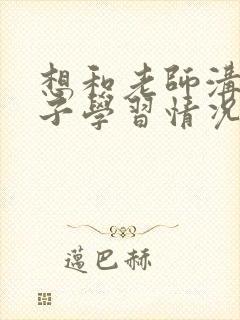 想和老師溝
子學習情況
薖巴赫